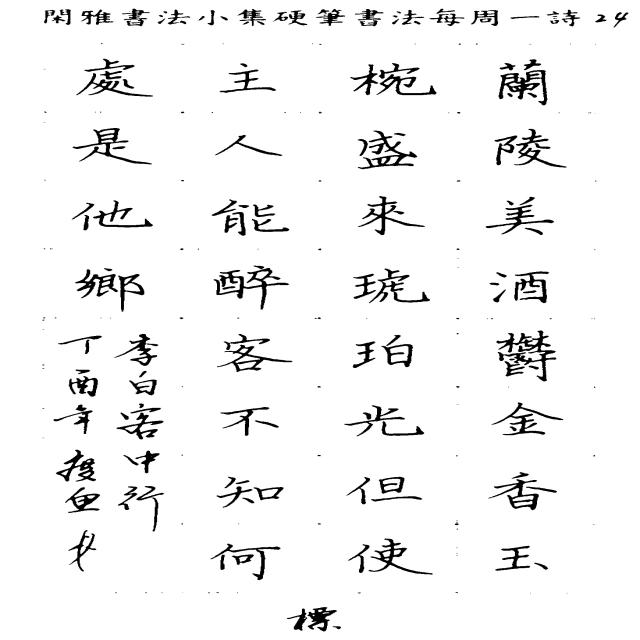 閑雅書法小集硬筆書法每周一詩24
蘭陵美酒鬱金香玉
椀盛來琥珀光但使
主人能醉客不知何
處是他鄉
李白客中行
丁酉年